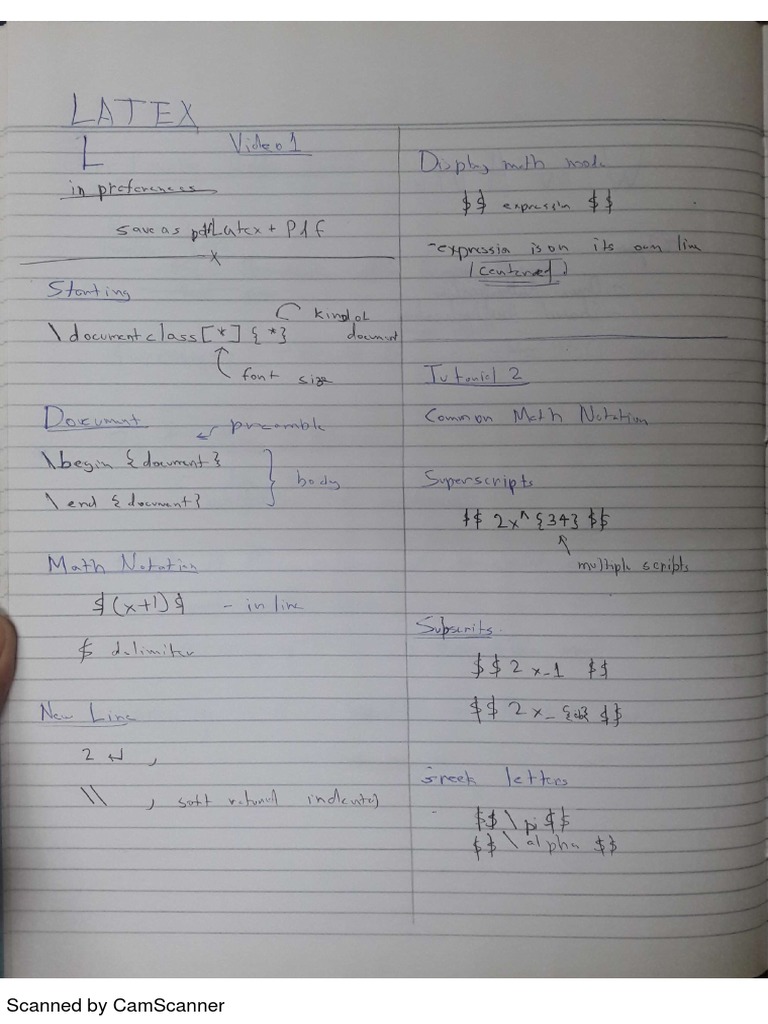 LATEX
L Video 1
in preferences
save as pdfLatex + Pdf
x
Starting
kind of
\documentclass[*]{*} document
font size
Document
preamble
\begin {document}
body
\end {document}
Math Notation
$(x+1)$ - in line
$ delimiter
New Line
2 ↵ ,
\\ , soft return
Display math mode
$$ expression $$
-expression is on its own line
(centered)
Tutorial 2
Common Math Notation
Superscripts
$$ 2x^{34} $$
multiple scripts
Subscrits
$$ 2x_1 $$
$$ 2x_ $$
Greek letters
$$\pi$$
$$\alpha $$
Scanned by CamScanner